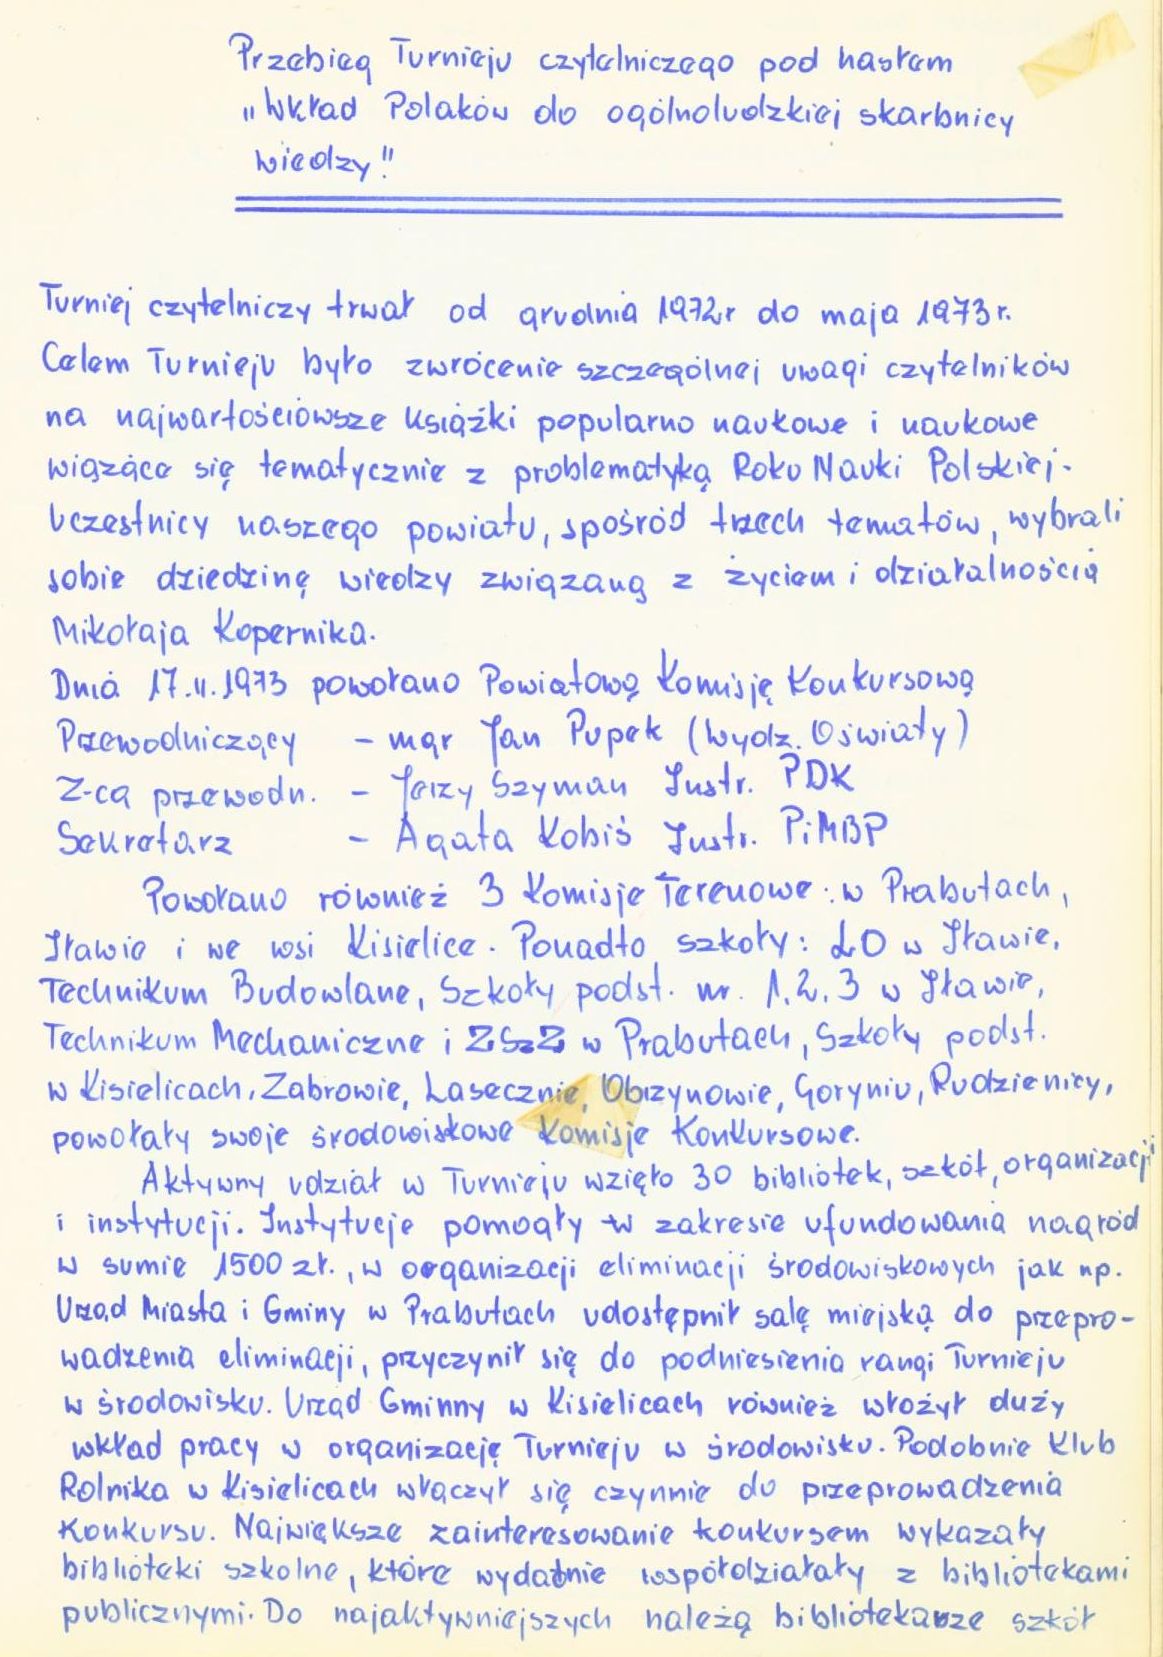 Przebieg Turnieju czytelniczego pod hasłem
„Wkład Polaków do ogólnoludzkiej skarbnicy
wiedzy"
Turniej czytelniczy trwał od grudnia 1972r do maja 1973r.
Celem Turnieju było zwrócenie szczególnej uwagi czytelników
na najwartościowsze książki popularno naukowe i naukowe
wiążące się tematycznie z problematyką Roku Nauki Polskiej.
Uczestnicy naszego powiatu, spośród trzech tematów, wybrali
sobie dziedzinę wiedzy związaną z życiem i działalnością
Mikołaja Kopernika.
Dnia 17.II.1973 powołano Powiatową Komisję Konkursową
Przewodniczący - mgr Jan Pupek (Wydz. Oświaty)
Z-ca przewodn. - Jerzy Szyman Instr. PDK
Sekretarz - Agata Kobiś Instr. PiMBP
Powołano również 3 Komisje Terenowe: w Prabutach,
Iławie i we wsi Kisielice. Ponadto szkoły: LO w Iławie,
Technikum Budowlane, Szkoły podst. nr. 1, 2, 3 w Iławie,
Technikum Mechaniczne i ZSzZ w Prabutach, Szkoły podst.
w Kisielicach, Ząbrowie, Lasecznie, Obrzynowie, Goryniu, Rudzienicy,
powołały swoje środowiskowe Komisje Konkursowe.
Aktywny udział w Turnieju wzięło 30 bibliotek, szkół, organizacji
i instytucji. Instytucje pomogły w zakresie ufundowania nagród
w sumie 1500 zł., w organizacji eliminacji środowiskowych jak np.
Urząd Miasta i Gminy w Prabutach udostępnił salę miejską do przepro-
wadzenia eliminacji, przyczynił się do podniesienia rangi Turnieju
w środowisku. Urząd Gminny w Kisielicach również włożył duży
wkład pracy w organizację Turnieju w środowisku. Podobnie Klub
Rolnika w Kisielicach włączył się czynnie do przeprowadzenia
Konkursu. Największe zainteresowanie konkursem wykazały
biblioteki szkolne, które wydatnie współdziałały z bibliotekami
publicznymi. Do najaktywniejszych należą bibliotekarze szkół